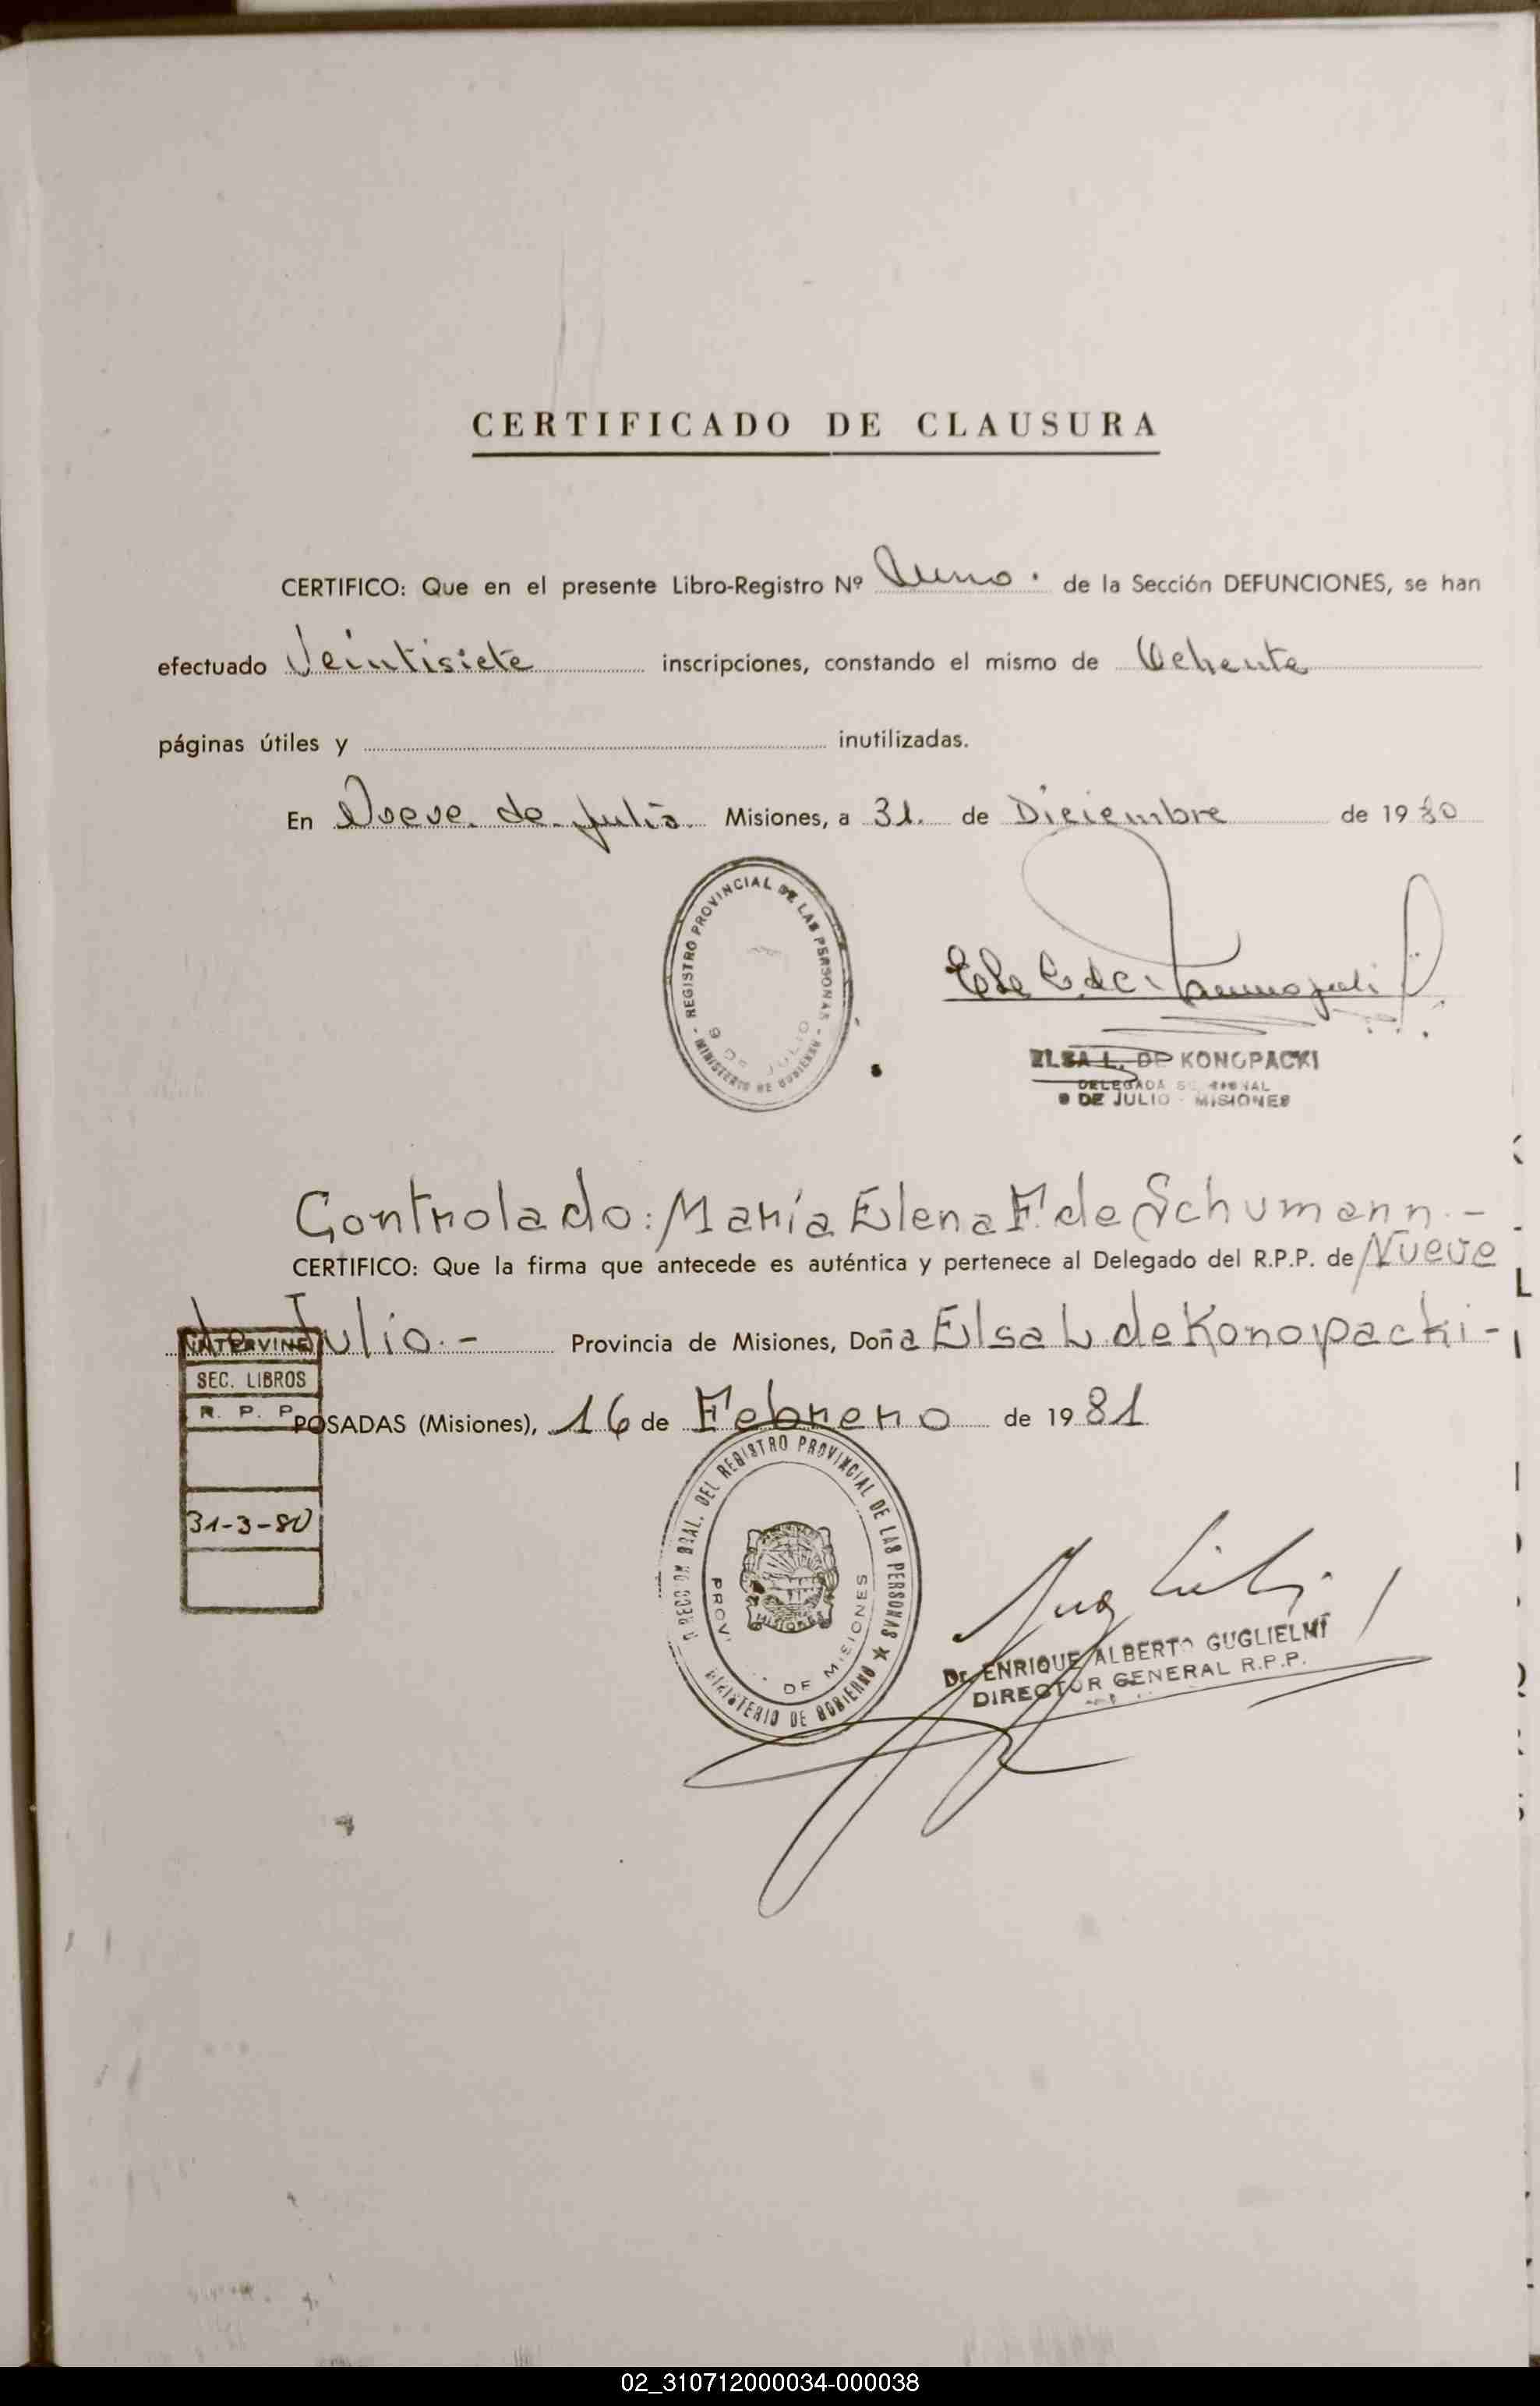 CERTIFICADO DE CLAUSURA
CERTIFICO: Que en el presente Libro-Registro Nº uno. de la Sección DEFUNCIONES, se han
efectuado Veintisiete inscripciones, constando el mismo de Ochenta
páginas útiles y inutilizadas.
En Nueve de Julio Misiones, a 31. de Diciembre de 1980
- REGISTRO PROVINCIAL DE LAS PERSONAS -
MINISTERIO DE GOBIERNO
9 DE JULIO
ELSA L. DE KONOPACKI
DELEGADA
9 DE JULIO - MISIONES
Controlado: María Elena F. de Schumann.-
CERTIFICO: Que la firma que antecede es auténtica y pertenece al Delegado del R.P.P. de Nueve
de Julio.- Provincia de Misiones, Doña Elsa L. de Konopacki-
INTERVINE
SEC. LIBROS
R. P. P.
POSADAS (Misiones), 16 de Febrero de 1981
31-3-80
DIRECCION GRAL. DEL REGISTRO PROVINCIAL DE LAS PERSONAS ★
MINISTERIO DE GOBIERNO
PROV. DE MISIONES
MISIONES
Dr. ENRIQUE ALBERTO GUGLIELMI
DIRECTOR GENERAL R.P.P.
02_310712000034-000038